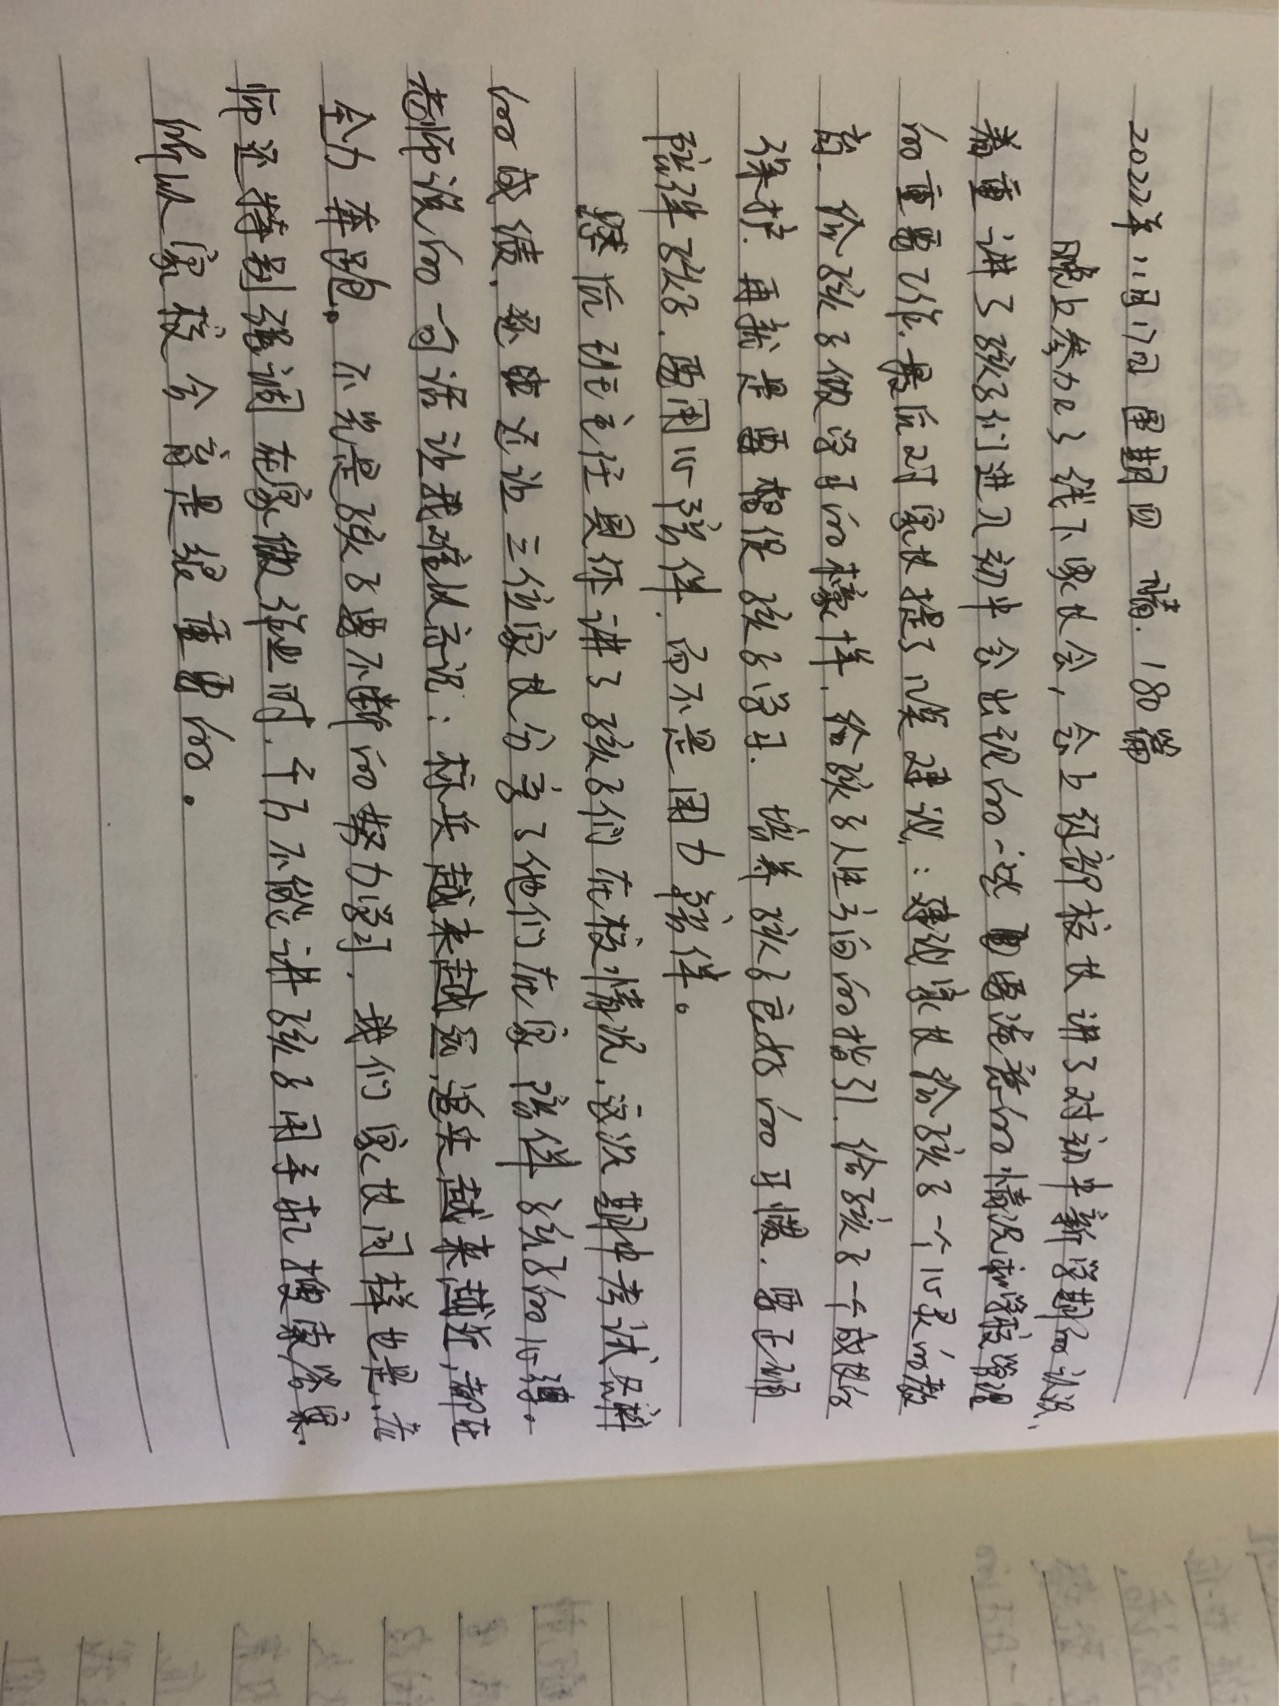 2022年11月17日 星期四 晴. 180篇
晚上参加了线下家长会，会上级部校长讲了对初中新学期的认识、
着重讲了孩子们进入初中会出现的一些需要注意的情况和学校管理
的重要工作.最后对家长提了几点建议：建议家长给孩子一个心灵的教
育. 给孩子做学习的榜样. 给孩子人生方向的指引. 给孩子一个成长的
保护. 再就是要督促孩子学习. 培养孩子良好的习惯. 要正确
陪伴孩子. 要用心陪伴. 而不是用力陪伴。
然后班主任具体讲了孩子们在校情况. 这次期中考试各科
的成绩. 还让三位家长分享了他们在家陪伴孩子的心得。
老师说的一句话让我难以忘记：标兵越来越远,追兵越来越近,都在
全力奔跑。不光是孩子要不断的努力学习, 我们家长同样也是. 老
师还特别强调在家做作业时. 千万不能让孩子用手机搜索答案.
所以家校合育是很重要的。